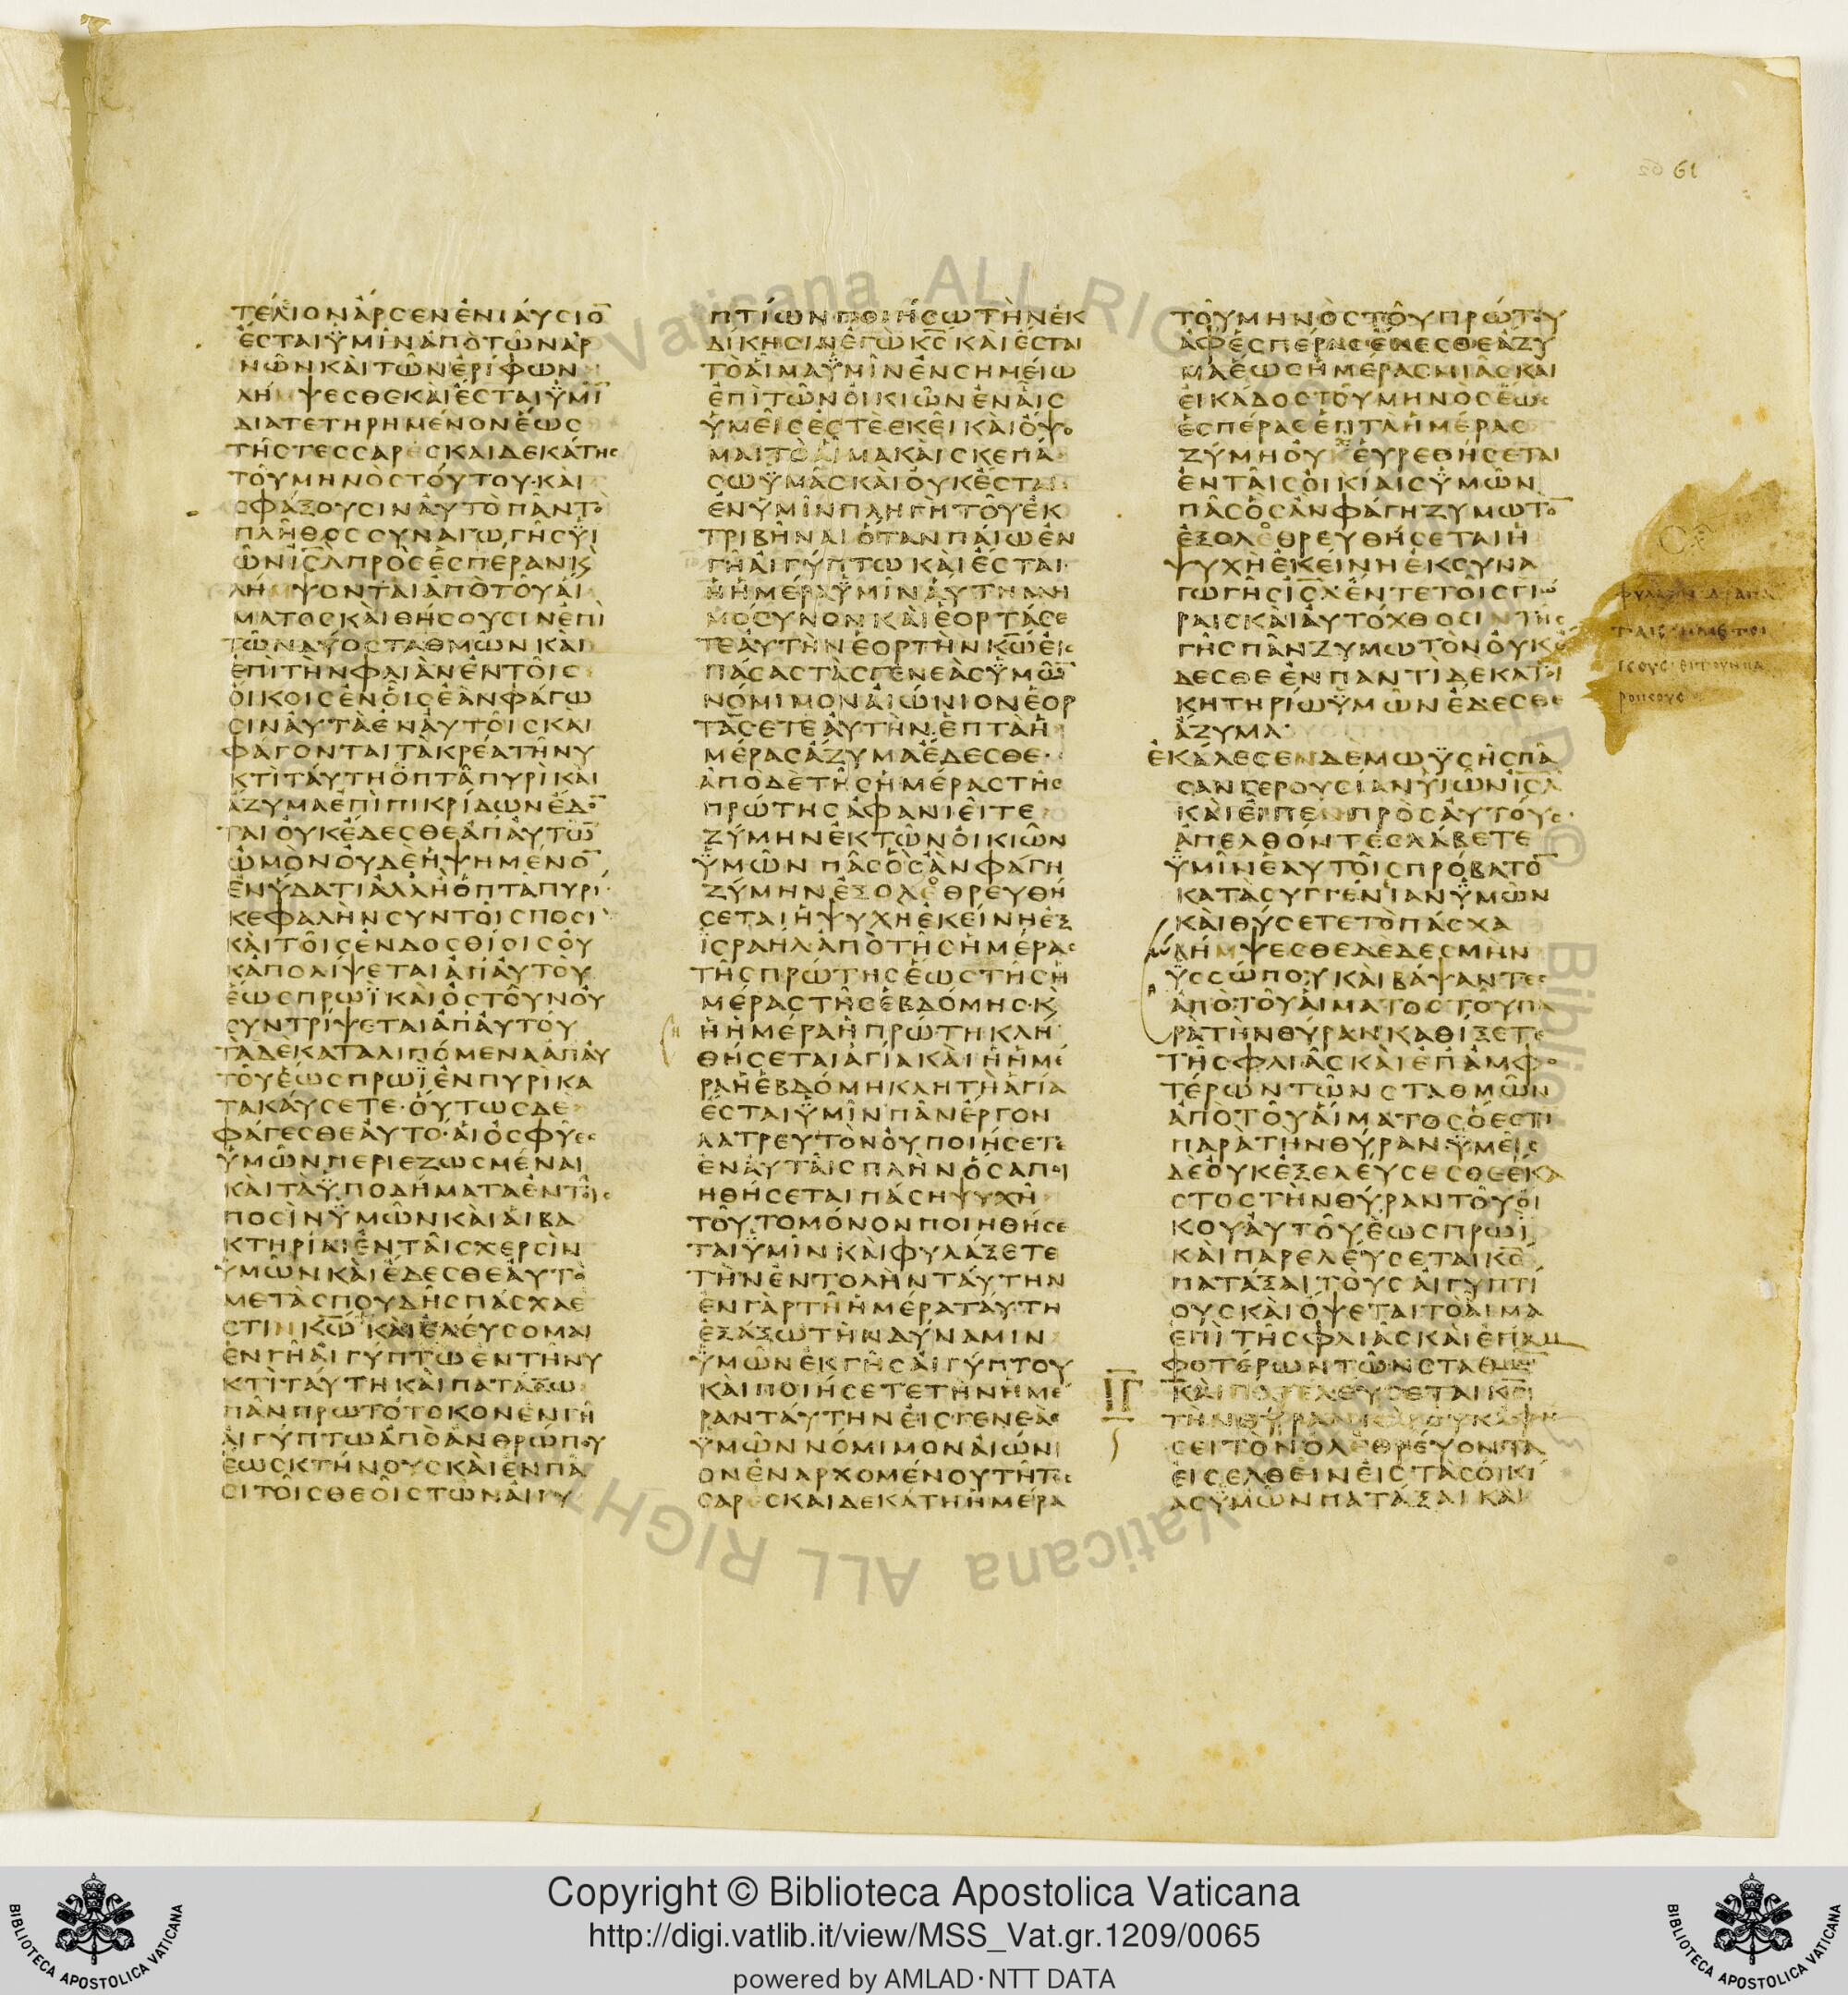 61
ΤΕΛΙΟΝΑΡΣΕΝΕΝΙΑΥΣΙΟ̅
ΕΣΤΑΙΥΜΙΝΑΠΟΤΩΝΑΡ
ΝΩΝΚΑΙΤΩΝΕΡΙΦΩΝ
ΛΗΜΨΕΣΘΕΚΑΙΕΣΤΑΙΥΜΙ̅
ΔΙΑΤΕΤΗΡΗΜΕΝΟΝΕΩΣ
ΤΗΣΤΕΣΣΑΡΕΣΚΑΙΔΕΚΑΤΗΣ
ΤΟΥΜΗΝΟΣΤΟΥΤΟΥ·ΚΑΙ
ΣΦΑΞΟΥΣΙΝΑΥΤΟΠΑΝΤΟ
ΠΛΗΘΟΣΣΥΝΑΓΩΓΗΣΥΙ
ΩΝΙΣ̅Λ̅ΠΡΟΣΕΣΠΕΡΑΝΚ
ΛΗΜΨΟΝΤΑΙΑΠΟΤΟΥΑΙ
ΜΑΤΟΣΚΑΙΘΗΣΟΥΣΙΝΕΠΙ
ΤΩΝΔΥΟΣΤΑΘΜΩΝΚΑΙ
ΕΠΙΤΗΝΦΛΙΑΝΕΝΤΟΙΣ
ΟΙΚΟΙΣΕΝΟΙΣΕΑΝΦΑΓΩ
ΣΙΝΑΥΤΑΕΝΑΥΤΟΙΣΚΑΙ
ΦΑΓΟΝΤΑΙΤΑΚΡΕΑΤΗΝΥ
ΚΤΙΤΑΥΤΗΟΠΤΑΠΥΡΙΚΑΙ
ΑΖΥΜΑΕΠΙΠΙΚΡΙΔΩΝΕΔΟ̅
ΤΑΙΟΥΚΕΔΕΣΘΕΑΠΑΥΤΩ̅
ΩΜΟΝΟΥΔΕΗΨΗΜΕΝΟ̅
ΕΝΥΔΑΤΙΑΛΛΗΟΠΤΑΠΥΡΙ·
ΚΕΦΑΛΗΝΣΥΝΤΟΙΣΠΟΣΙ
ΚΑΙΤΟΙΣΕΝΔΟΣΘΙΟΙΣΟΥ
ΚΑΠΟΛΙΨΕΤΑΙΑΠΑΥΤΟΥ
ΕΩΣΠΡΩΪΚΑΙΟΣΤΟΥΝΟΥ
ΣΥΝΤΡΙΨΕΤΑΙΑΠΑΥΤΟΥ
ΤΑΔΕΚΑΤΑΛΙΠΟΜΕΝΑΑΠΑΥ
ΤΟΥΕΩΣΠΡΩΪΕΝΠΥΡΙΚΑ
ΤΑΚΑΥΣΕΤΕ·ΟΥΤΩΣΔΕ
ΦΑΓΕΣΘΕΑΥΤΟ·ΑΙΟΣΦΥΕΣ
ΥΜΩΝΠΕΡΙΕΖΩΣΜΕΝΑΙ
ΚΑΙΤΑΥΠΟΔΗΜΑΤΑΕΝΤΟΙΣ
ΠΟΣΙΝΥΜΩΝΚΑΙΑΙΒΑ
ΚΤΗΡΙΑΙΕΝΤΑΙΣΧΕΡΣΙΝ
ΥΜΩΝΚΑΙΕΔΕΣΘΕΑΥΤΟ
ΜΕΤΑΣΠΟΥΔΗΣΠΑΣΧΑΕ
ΣΤΙΝΚ̅Ω̅ΚΑΙΕΛΕΥΣΟΜΑΙ
ΕΝΓΗΑΙΓΥΠΤΩΕΝΤΗΝΥ
ΚΤΙΤΑΥΤΗΚΑΙΠΑΤΑΞΩ
ΠΑΝΠΡΩΤΟΤΟΚΟΝΕΝΓΗ
ΑΙΓΥΠΤΩΑΠΟΑΝΘΡΩΠΟΥ
ΕΩΣΚΤΗΝΟΥΣΚΑΙΕΝΠΑ
ΣΙΤΟΙΣΘΕΟΙΣΤΩΝΑΙΓΥ
ΠΤΙΩΝΠΟΙΗΣΩΤΗΝΕΚ
ΔΙΚΗΣΙΝΕΓΩΚ̅Σ̅ΚΑΙΕΣΤΑΙ
ΤΟΑΙΜΑΥΜΙΝΕΝΣΗΜΕΙΩ
ΕΠΙΤΩΝΟΙΚΙΩΝΕΝΑΙΣ
ΥΜΕΙΣΕΣΤΕΕΚΕΙΚΑΙΟΨΟ
ΜΑΙΤΟΑΙΜΑΚΑΙΣΚΕΠΑ
ΣΩΥΜΑΣΚΑΙΟΥΚΕΣΤΑΙ
ΕΝΥΜΙΝΠΛΗΓΗΤΟΥΕΚ
ΤΡΙΒΗΝΑΙΟΤΑΝΠΑΙΩΕΝ
ΓΗΑΙΓΥΠΤΩΚΑΙΕΣΤΑΙ
ΗΗΜΕΡΑΥΜΙΝΑΥΤΗΜΝΗ
ΜΟΣΥΝΟΝΚΑΙΕΟΡΤΑΣΕ
ΤΕΑΥΤΗΝΕΟΡΤΗΝΚ̅Ω̅ΕΙΣ
ΠΑΣΑΣΤΑΣΓΕΝΕΑΣΥΜΩ̅
ΝΟΜΙΜΟΝΑΙΩΝΙΟΝΕΟΡ
ΤΑΣΕΤΕΑΥΤΗΝ·ΕΠΤΑΗ
ΜΕΡΑΣΑΖΥΜΑΕΔΕΣΘΕ·
ΑΠΟΔΕΤΗΣΗΜΕΡΑΣΤΗΣ
ΠΡΩΤΗΣΑΦΑΝΙΕΙΤΕ
ΖΥΜΗΝΕΚΤΩΝΟΙΚΙΩΝ
ΥΜΩΝΠΑΣΟΣΑΝΦΑΓΗ
ΖΥΜΗΝΕΞΟΛΕΘΡΕΥΘΗ
ΣΕΤΑΙΗΨΥΧΗΕΚΕΙΝΗΕΞ
ΙΣΡΑΗΛΑΠΟΤΗΣΗΜΕΡΑΣ
ΤΗΣΠΡΩΤΗΣΕΩΣΤΗΣΗ
ΜΕΡΑΣΤΗΣΕΒΔΟΜΗΣ·Κ
ΗΗΜΕΡΑΗΠΡΩΤΗΚΛΗ
ΘΗΣΕΤΑΙΑΓΙΑΚΑΙΗΗΜΕ
ΡΑΗΕΒΔΟΜΗΚΛΗΤΗΑΓΙΑ
ΕΣΤΑΙΥΜΙΝΠΑΝΕΡΓΟΝ
ΛΑΤΡΕΥΤΟΝΟΥΠΟΙΗΣΕΤΕ
ΕΝΑΥΤΑΙΣΠΛΗΝΟΣΑΠΟΙ
ΗΘΗΣΕΤΑΙΠΑΣΗΨΥΧΗ
ΤΟΥΤΟΜΟΝΟΝΠΟΙΗΘΗΣΕ
ΤΑΙΥΜΙΝΚΑΙΦΥΛΑΞΕΤΕ
ΤΗΝΕΝΤΟΛΗΝΤΑΥΤΗΝ
ΕΝΓΑΡΤΗΗΜΕΡΑΤΑΥΤΗ
ΕΞΑΞΩΤΗΝΔΥΝΑΜΙΝ
ΥΜΩΝΕΚΓΗΣΑΙΓΥΠΤΟΥ
ΚΑΙΠΟΙΗΣΕΤΕΤΗΝΗΜΕ
ΡΑΝΤΑΥΤΗΝΕΙΣΓΕΝΕΑΣ
ΥΜΩΝΝΟΜΙΜΟΝΑΙΩΝΙ
ΟΝΕΝΑΡΧΟΜΕΝΟΥΤΗΤΕΣ
ΣΑΡΕΣΚΑΙΔΕΚΑΤΗΗΜΕΡΑ
ΤΟΥΜΗΝΟΣΤΟΥΠΡΩΤΟΥ
ΑΦΕΣΠΕΡΑΣΕΔΕΣΘΕΑΖΥ
ΜΑΕΩΣΗΜΕΡΑΣΜΙΑΣΚΑΙ
ΕΙΚΑΔΟΣΤΟΥΜΗΝΟΣΕΩΣ
ΕΣΠΕΡΑΣΕΠΤΑΗΜΕΡΑΣ
ΖΥΜΗΟΥΧΕΥΡΕΘΗΣΕΤΑΙ
ΕΝΤΑΙΣΟΙΚΙΑΙΣΥΜΩΝ
ΠΑΣΟΣΑΝΦΑΓΗΖΥΜΩΤΟ̅
ΕΞΟΛΕΘΡΕΥΘΗΣΕΤΑΙΗ
ΨΥΧΗΕΚΕΙΝΗΕΚΣΥΝΑ
ΓΩΓΗΣΙΣ̅Λ̅ΕΝΤΕΤΟΙΣΓΙΩ
ΡΑΙΣΚΑΙΑΥΤΟΧΘΟΣΙΝΤΗΣ
ΓΗΣΠΑΝΖΥΜΩΤΟΝΟΥΚΕ
ΔΕΣΘΕΕΝΠΑΝΤΙΔΕΚΑΤΟΙ
ΚΗΤΗΡΙΩΥΜΩΝΕΔΕΣΘΕ
ΑΖΥΜΑ
ΕΚΑΛΕΣΕΝΔΕΜΩΥΣΗΣΠΑ
ΣΑΝΓΕΡΟΥΣΙΑΝΥΙΩΝΙΣ̅Λ̅
ΚΑΙΕΙΠΕΝΠΡΟΣΑΥΤΟΥΣ·
ΑΠΕΛΘΟΝΤΕΣΛΑΒΕΤΕ
ΥΜΙΝΕΑΥΤΟΙΣΠΡΟΒΑΤΟ̅
ΚΑΤΑΣΥΓΓΕΝΙΑΝΥΜΩΝ
ΚΑΙΘΥΣΕΤΕΤΟΠΑΣΧΑ
ΛΗΜΨΕΣΘΕΔΕΔΕΣΜΗΝ
ΥΣΣΩΠΟΥΚΑΙΒΑΨΑΝΤΕΣ
ΑΠΟΤΟΥΑΙΜΑΤΟΣΤΟΥΠΑ
ΡΑΤΗΝΘΥΡΑΝΚΑΘΙΞΕΤΕ
ΤΗΣΦΛΙΑΣΚΑΙΕΠΑΜΦΟ
ΤΕΡΩΝΤΩΝΣΤΑΘΜΩΝ
ΑΠΟΤΟΥΑΙΜΑΤΟΣΟΕΣΤΙ
ΠΑΡΑΤΗΝΘΥΡΑΝΥΜΕΙΣ
ΔΕΟΥΚΕΞΕΛΕΥΣΕΣΘΕΕΚΑ
ΣΤΟΣΤΗΝΘΥΡΑΝΤΟΥΟΙ
ΚΟΥΑΥΤΟΥΕΩΣΠΡΩΪ
ΚΑΙΠΑΡΕΛΕΥΣΕΤΑΙΚ̅Σ̅
ΠΑΤΑΞΑΙΤΟΥΣΑΙΓΥΠΤΙ
ΟΥΣΚΑΙΟΨΕΤΑΙΤΟΑΙΜΑ
ΕΠΙΤΗΣΦΛΙΑΣΚΑΙΕΠΑΜ
ΦΟΤΕΡΩΝΤΩΝΣΤΑΘΜΩ̅
ΙΓ
ΚΑΙΠΑΡΕΛΕΥΣΕΤΑΙΚ̅Σ̅
ΤΗΝΘΥΡΑΝΚΑΙΟΥΚΑΦΗ
ΣΕΙΤΟΝΟΛΕΘΡΕΥΟΝΤΑ
ΕΙΣΕΛΘΕΙΝΕΙΣΤΑΣΟΙΚΙ
ΑΣΥΜΩΝΠΑΤΑΞΑΙΚΑΙ
Vaticana ALL RIG
© Biblioteca
Vaticana ALL RIGHT
Copyright © Biblioteca Apostolica Vaticana
http://digi.vatlib.it/view/MSS_Vat.gr.1209/0065
powered by AMLAD·NTT DATA
BIBLIOTECA APOSTOLICA VATICANA
BIBLIOTECA APOSTOLICA VATICANA